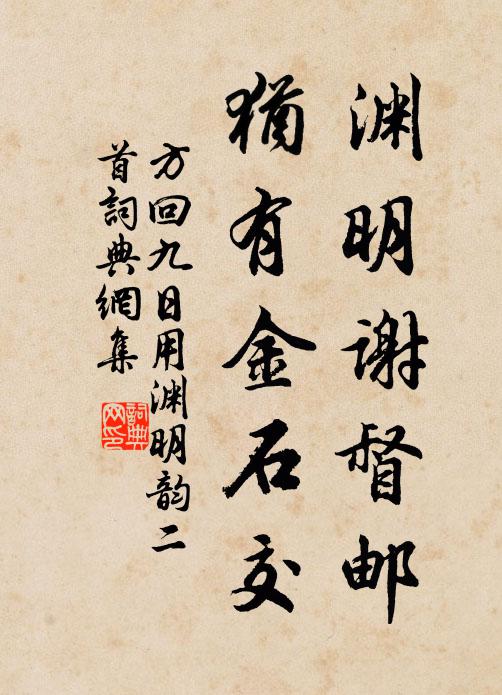 渊明谢督邮
猶有金石交
方回九日用渊明韵二
首詞典網集
詞典网印